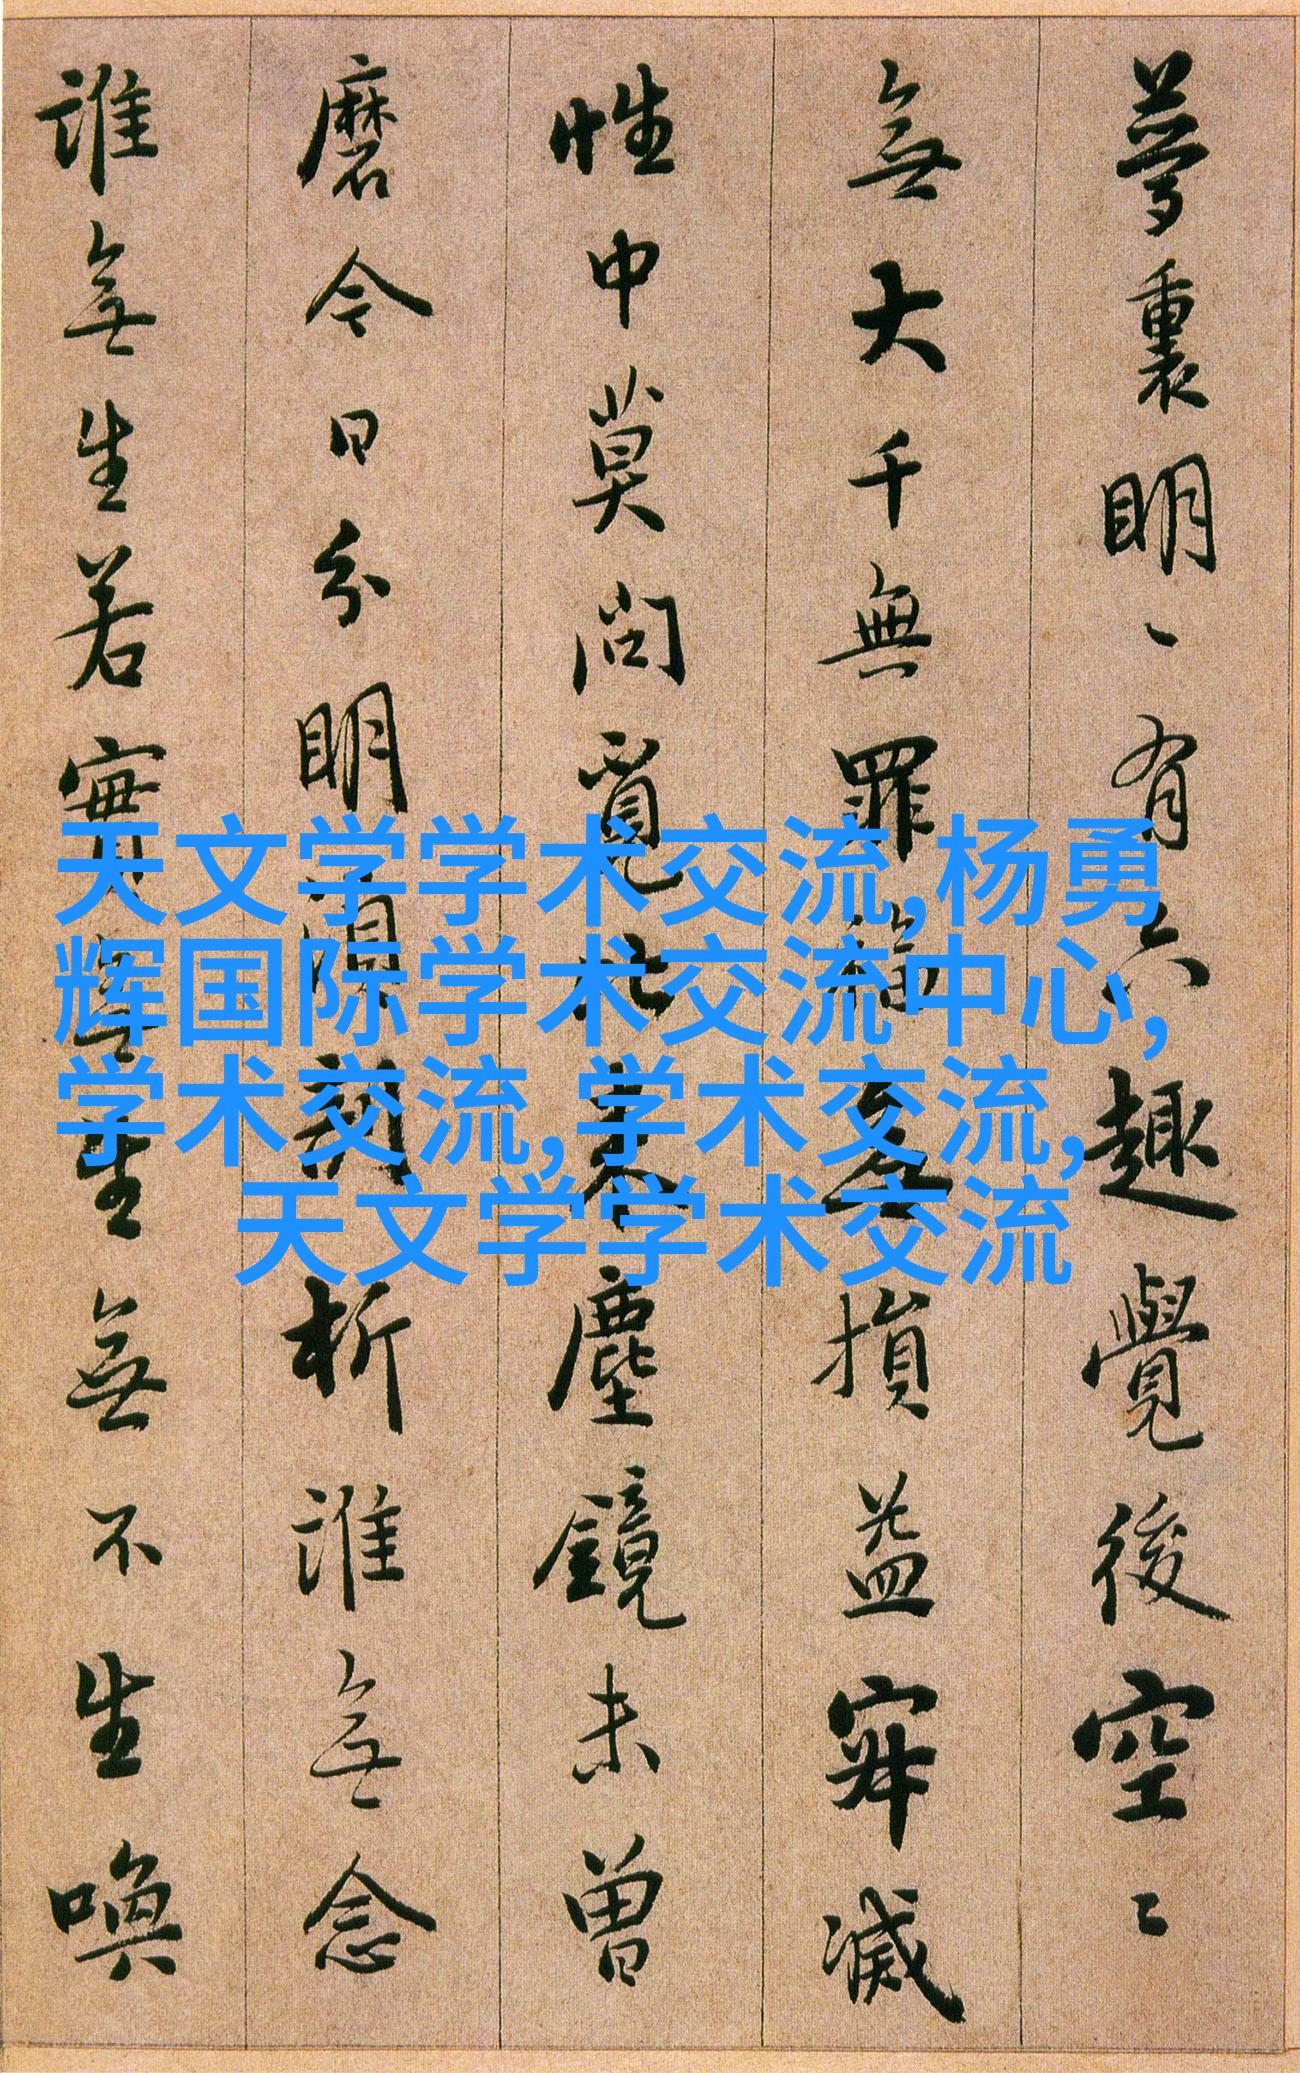 夢裏明〻有六趣覺後空〻
無大千無罪福無損益寂滅
性中莫問覓比來塵鏡未曾
磨今日分明須剖析誰無念
誰無生若實無生無不生喚
天文学学术交流,杨勇
辉国际学术交流中心,
学术交流,学术交流,
天文学学术交流